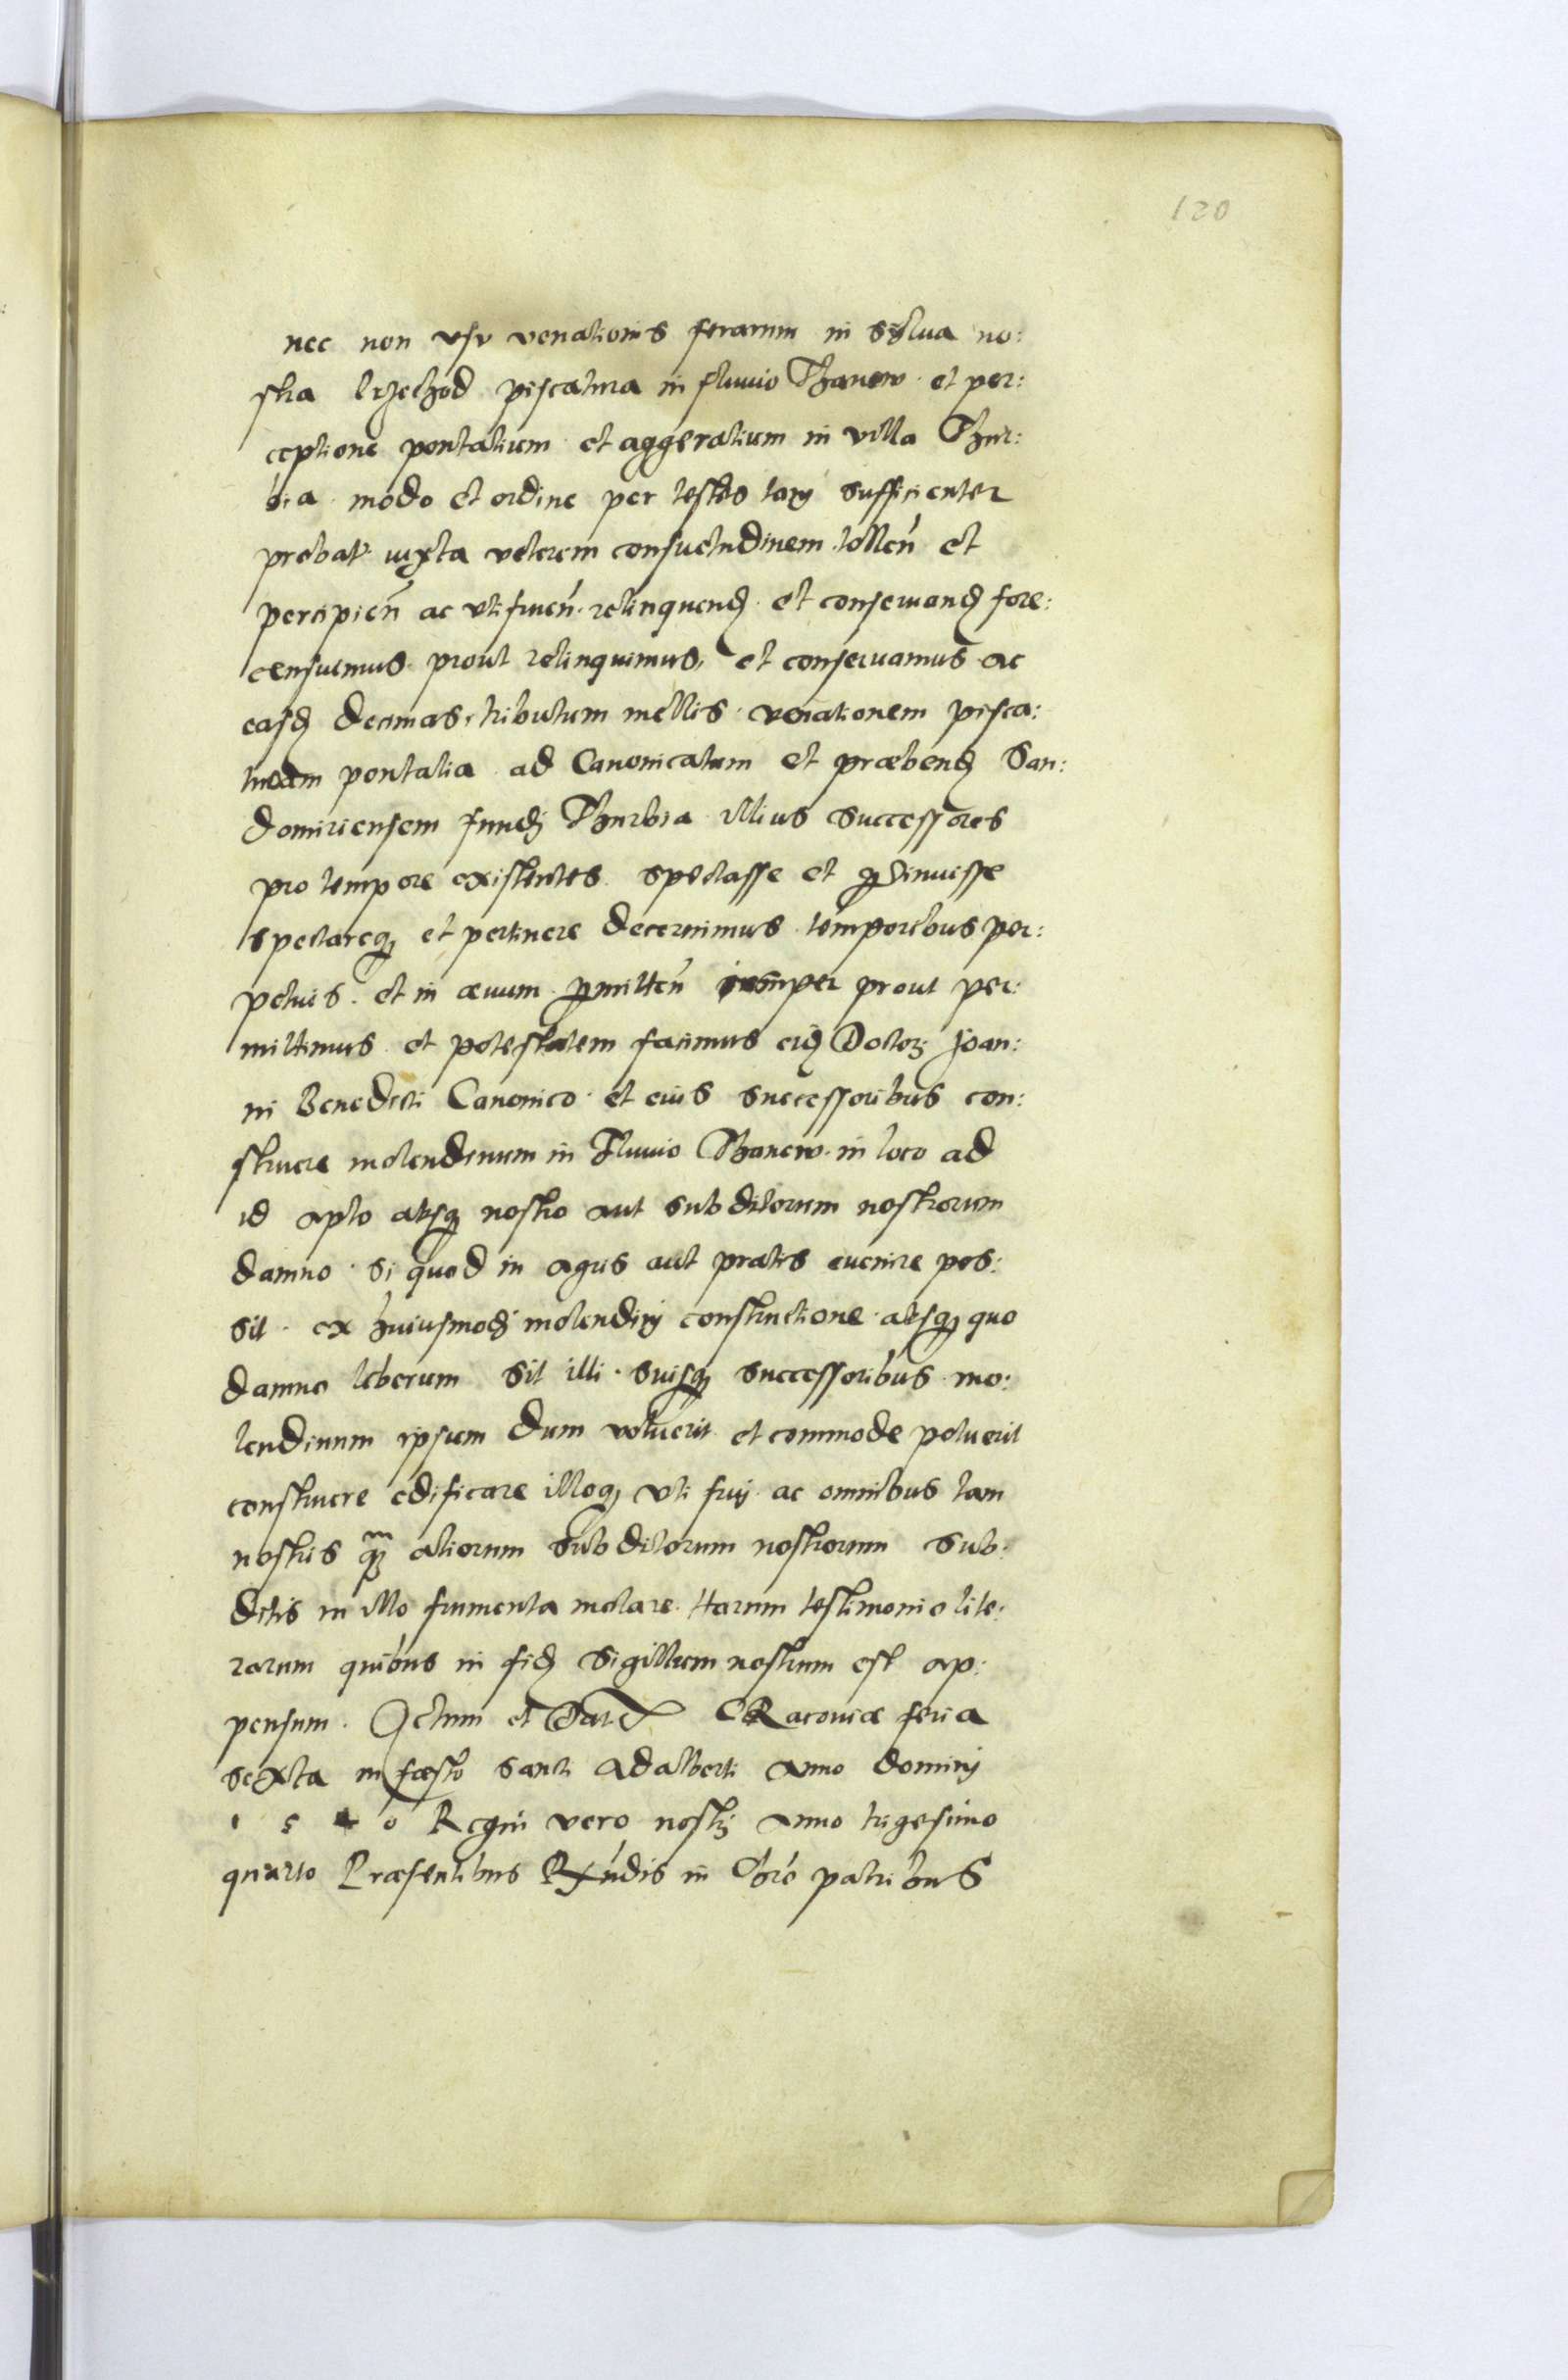 120
nec non vsu venationis ferarum in sylua no:
stra Crzechod piscatura in fluuio Thanew et per:
ceptione pontalium et aggeralium in villa Thur:
bia modo et ordine per testes tam sufficienter
probat. iuxta veterem consuetudinem tollen̄ et
percipien̄ ac vti fruen̄ relinquend̨ et conseruand̨ fore:
censuimus prout relinquimus, et conseruamus ac
easd̨ decimas, tributum mellis venationem pisca:
turam pontalia ad Canonicatum et præbend̨ San:
domiriensem fundi Thurbia illius successores
pro tempore existentes spectasse et ꝑtinuisse
spectareq; et pertinere decernimus temporibus per:
petuis. et in æuum ꝑmitten̄ semper prout per:
mittimus et potestatem facimus eid̨ Doctori Joan:
ni Benedicti Canonico et eius successoribus con:
struere molendinum in Fluuio Thanew in loco ad
id apto absq; nostro aut subditorum nostrorum
damno. Si quod in agris aut pratis euenire pos:
sit. ex huiusmodi molendinj constructione absq; quo
damno liberum sit illi suisq; successoribus mo:
lendinum ipsum dum voluerit et commode potuerit
construere edificare illoq; vti frui ac omnibus tam
nostris q̃ȝ aliorum subditorum nostrorum sub:
ditis in illo frumenta molare. Harum testimonio lite:
rarum quibus in fid̨ sigillum nostrum est ap:
pensum. Actum et Dat. CRacouiæ feria
sexta in fæsto sancti Adalberti anno dominj
1 5 4 0 Regni vero nostri anno trigesimo
quarto Præsentibus Rx̄ndis in Chrō patribus